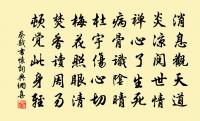 消息觀天道
炎涼閱世情
禪心了生死
病骨識陰晴
杜宇傷心切
梅花照眼明
焚香讀周易
頓覺此身輕
蔡戡書懷詞典網